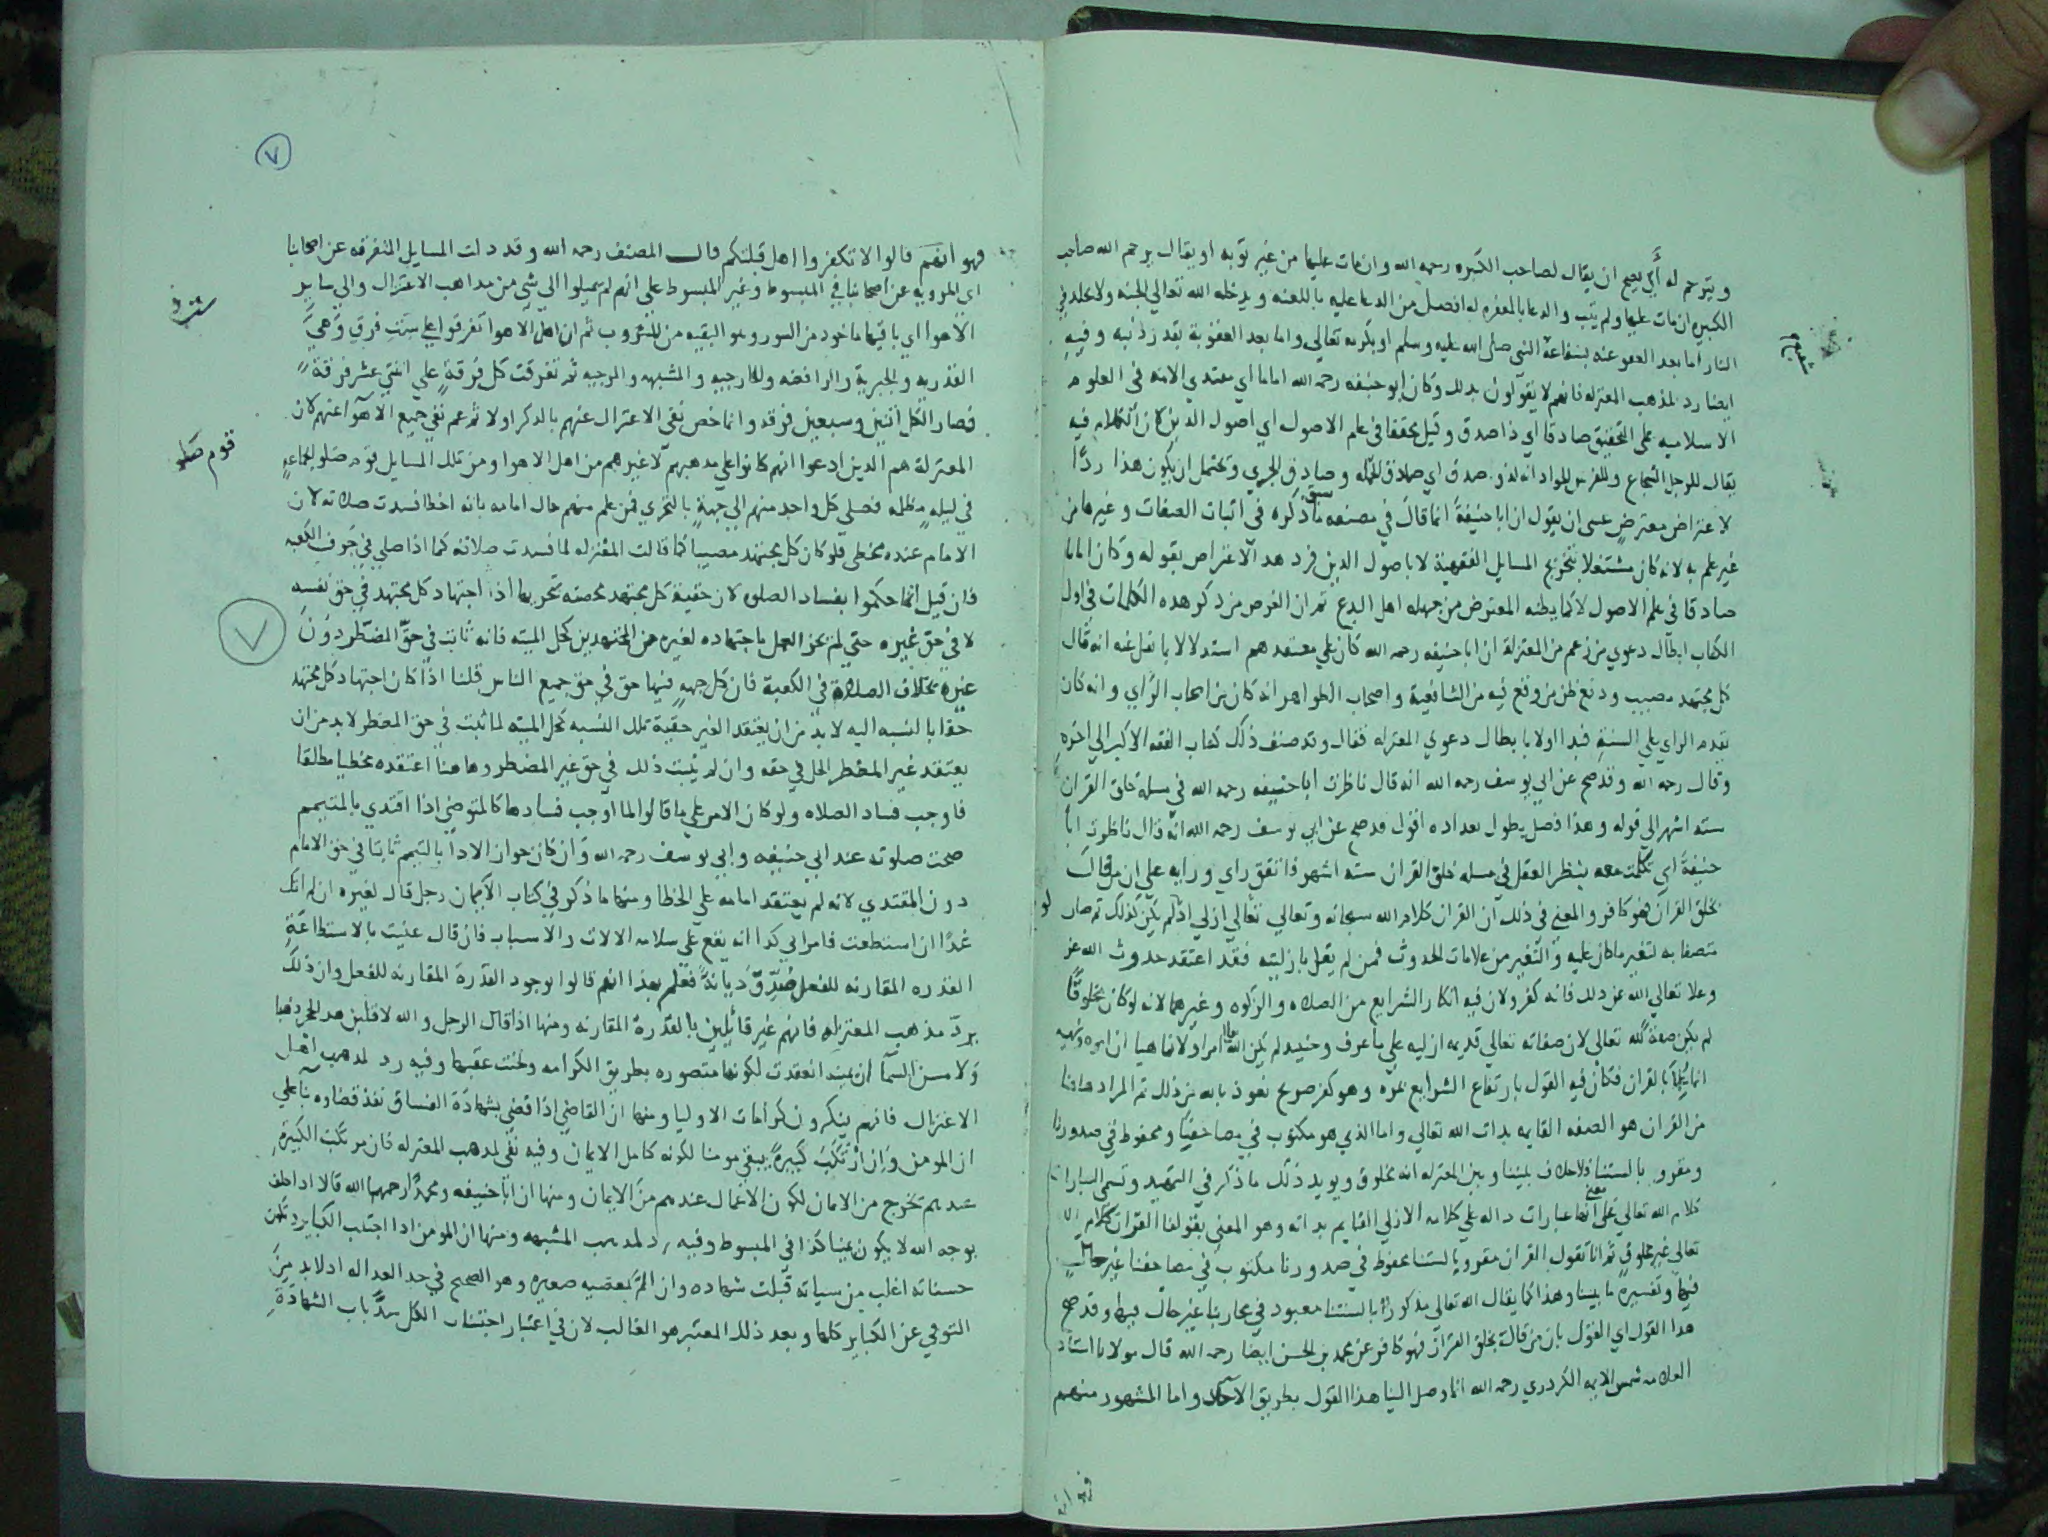 ويترحم له أي يصح ان يقال لصاحب الكبيره رحمه الله وان مات عليها من غير توبه او يقال يرحم الله صاحب
الكبيره ان مات عليها ولم يتب والدعا بالمغفره له افضل من الدعا عليه باللعنه ويدخله الله تعالي الجنه ولا يخلد في
النار اما بعد العفو عنه بشفاعة النبي صلى الله عليه وسلم او بكرمه تعالي واما بعد العقوبة بقدر ذنبه وفيه
ايضا رد لمذهب المعتزله فانهم لا يقولون بذلك وكان ابو حنيفه رحمه الله اماما اي مقتدي الامه في العلوم
الاسلاميه على التحقيق صادقا اي ذا صدق وقيل محققا في علم الاصول اي اصول الدين كان الكلام فيه
يقال للرجل الشجاع وللفرس الجواد انه لذو صدق اي صادق الحمله وصادق الجري ويحتمل ان يكون هذا ردًّا
لاعتراض معترض عسى ان يقول ان ابا حنيفة انما قال في مصنفه ما سبق ذكره في اثبات الصفات وغيرها من
غير علم به لانه كان مشتغلا بتخريج المسايل الفقهية لا باصول الدين فرد هذا الاعتراض بقوله وكان اماما
صادقا في علم الاصول لا كما يظنه المعترض من جهله اهل البدع ثم ان الغرض من ذكر هذه الكلمات في اول
الكتاب ابطال دعوي من زعم من المعتزلة ان ابا حنيفه رحمه الله كان على معتقدهم استدلالا بما نقل عنه انه قال
كل مجتهد مصيب ودفع ظن من وقع فيه من الشافعية واصحاب الظواهر انه كان من اصحاب الرأي وانه كان
يقدم الراي على السنة فبدا اولا بابطال دعوي المعتزله فقال وقد صنف ذلك كتاب الفقه الاكبر الي اخره
وقال رحمه الله وقد صح عن ابي يوسف رحمه الله انه قال ناظرت ابا حنيفه رحمه الله في مسلة خلق القران
سته اشهر الي قوله وهذا فصل يطول تعداده اقول قد صح عن ابي يوسف رحمه الله انه قال ناظرت ابا
حنيفة اي تكلمت معه بنظر العقل في مسله خلق القران سته اشهر فاتفق راي ورايه علي ان من قال
بخلق القران فهو كافر والمعني في ذلك ان القران كلام الله سبحانه وتعالي تعالي ازلي اذ لو لم يكن كذلك ثم صار
متصفا به لتغير ما كان عليه والتغير من علامات الحدوث فمن لم يقل بازليته فقد اعتقد حدوث الله عز
وعلا تعالي الله عن ذلك فانه كفر ولان فيه انكار الشرايع من الصلاه والزكوه وغيرهما لانه لو كان مخلوقًا
لم يكن صفة لله تعالى لان صفاته تعالي قديمه ازليه علي ما عرف وحينيد لم يكن الله تعالى امرا ولا ناهيا اذ امره ونهيه
بالقران فكان فيه القول بارتفاع الشرايع وهو كفر صريح نعوذ بالله من ذلك ثم المراد هاهنا
من القران هو الصفه القايمه بذات الله تعالي واما الذي هو مكتوب في مصاحفنا ومحفوظ في صدورنا
ومقرو بالسنتنا فلا خلاف بيننا وبين المعتزله انه مخلوق ويويد ذلك ما ذكر في التمهيد وتسمي العبارات
كلام الله تعالي على معنى انها عبارات داله علي كلامه الازلي القايم بذاته وهو المعني بقولنا القران كلام الله
تعالى غير مخلوق ثم انا نقول القران مقرو بالسنتنا محفوظ في صدورنا مكتوب في مصاحفنا غير حال
فيها وتفسيره ما بينا وهذا كما يقال الله تعالي مذكور بالسنتنا معبود في محاريبنا غير حال فيها وقد صح
هذا القول اي القول بان من قال بخلق القران فهو كافر عن محمد بن الحسن ايضا رحمه الله قال مولانا استاد
العلامه شمس الايمه الكردري رحمه الله انما وصل الينا هذا القول بطريق الآحاد واما المشهور منهم
شرح
٧
فهو انهم قالوا لا تكفروا اهل قبلتكم قال المصنف رحمه الله وقد دلت المسايل المتفرقه عن اصحابنا
اي المرويه عن اصحابنا في المبسوط وغير المبسوط على انهم لم يميلوا الي شي من مذاهب الاعتزال والي ساير
الاهوا اي باقيها ماخود من السور وهو البقيه من المشروب ثم ان اهل الاهوا تفرقوا علي ست فرق وهي
القدريه والجبرية والرافضه والخارجيه والمشبهه والمرجيه ثم تفرقت كل فرقة علي اثنتي عشر فرقة
فصار الكل اثنين وسبعين فرقه وانما خص نفي الاعتزال عنهم بالذكر اولا ثم عم نفي جميع الاهوا عنهم لان
المعتزلة هم الدين ادعوا انهم كانوا علي مدهبهم لا غيرهم من اهل الاهوا ومن تلك المسايل قوم صلوا بجماعة
في ليلة مظلمه فصلى كل واحد منهم الي جهة بالتحري فمن علم منهم حال امامه بانه اخطا فسدت صلاته لان
الامام عنده مخطي فلو كان كل مجتهد مصيبا كما قالت المعتزله لما فسدت صلاته كما اذا صلي في جوف الكعبه
فان قيل انما حكموا بفساد الصلوه لان حقية كل مجتهد مختصه بحق نفسه اذ اجتهاد كل مجتهد في حق نفسه
لا في حق غيره حتي لم يجز العمل باجتهاده لغيره من المجتهدين كحل الميته فانه ثابت في حق المضطر دون
غيره بخلاف الصلاة في الكعبة فان كل جهه فيها حق في حق جميع الناس قلنا اذا كان اجتهاد كل مجتهد
حقا بالنسبه اليه لابد من ان يعتقد الغير حقية تلك النسبه كحل الميته لما ثبت في حق المضطر لابد من ان
يعتقد غير المضطر الحل في حقه وان لم يثبت ذلك في حق غير المضطر وهاهنا اعتقده مخطيا مطلقا
فاوجب فساد الصلاه ولو كان الامر علي ما قالوا لما اوجب فسادها كالمتوضي اذا اقتدي بالمتيمم
صحت صلوته عند ابي حنيفه وابي يوسف رحمه الله وان كان جواز الادا بالتيمم ثابتا في حق الامام
دون المقتدي لانه لم يعتقد امامه على الخطا ومنها ما ذكر في كتاب الايمان رجل قال لغيره ان لم اتك
غدًا ان استطعت فامراتي كذا انه يقع علي سلامه الالات والاسباب فان قال عنيت بالاستطاعة
القدره المقارنه للفعل صُدِّق ديانةً فعلم بهذا انهم قالوا بوجود القدرة المقارنه للفعل وان ذلك
يردّ مذهب المعتزله فانهم غير قائلين بالقدرة المقارنه ومنها اذا قال الرجل والله لاقلبن هذا الحجر ذهبا
ولامسن السمآ ان يمينه انعقدت لكونها متصوره بطريق الكرامه ولحنث عقيبها وفيه رد لمدهب اهل
الاعتزال فانهم ينكرون كرامات الاوليا ومنها ان القاضي اذا قضي بشهادة الفساق نفذ قضاوه بناً علي
ان المومن وان ارتكب كبيرةً يبقي مومنا لكونه كامل الايمان وفيه نفي لمدهب المعتزله فان مرتكب الكبيره
عندهم تخرج من الايمان لكون الاعمال عندهم من الايمان ومنها ان ابا حنيفه ومحمدًا رحمهما الله قالا اذا حلف
بوجه الله لا يكون يمينا كذا في المبسوط وفيه رد لمدهب المشبهه ومنها ان المومن اذا اجتنب الكباير وكانت
حسناته اغلب من سياته قُبلت شهاده وان المّ بمعصيه صغيره وهو الصحيح في حد العداله اذ لابد من
التوقي عن الكباير كلها وبعد ذلك المعتبر هو الغالب لان في اعتبار اجتناب الكل سدّ باب الشهادة
قوم صلوا
٧